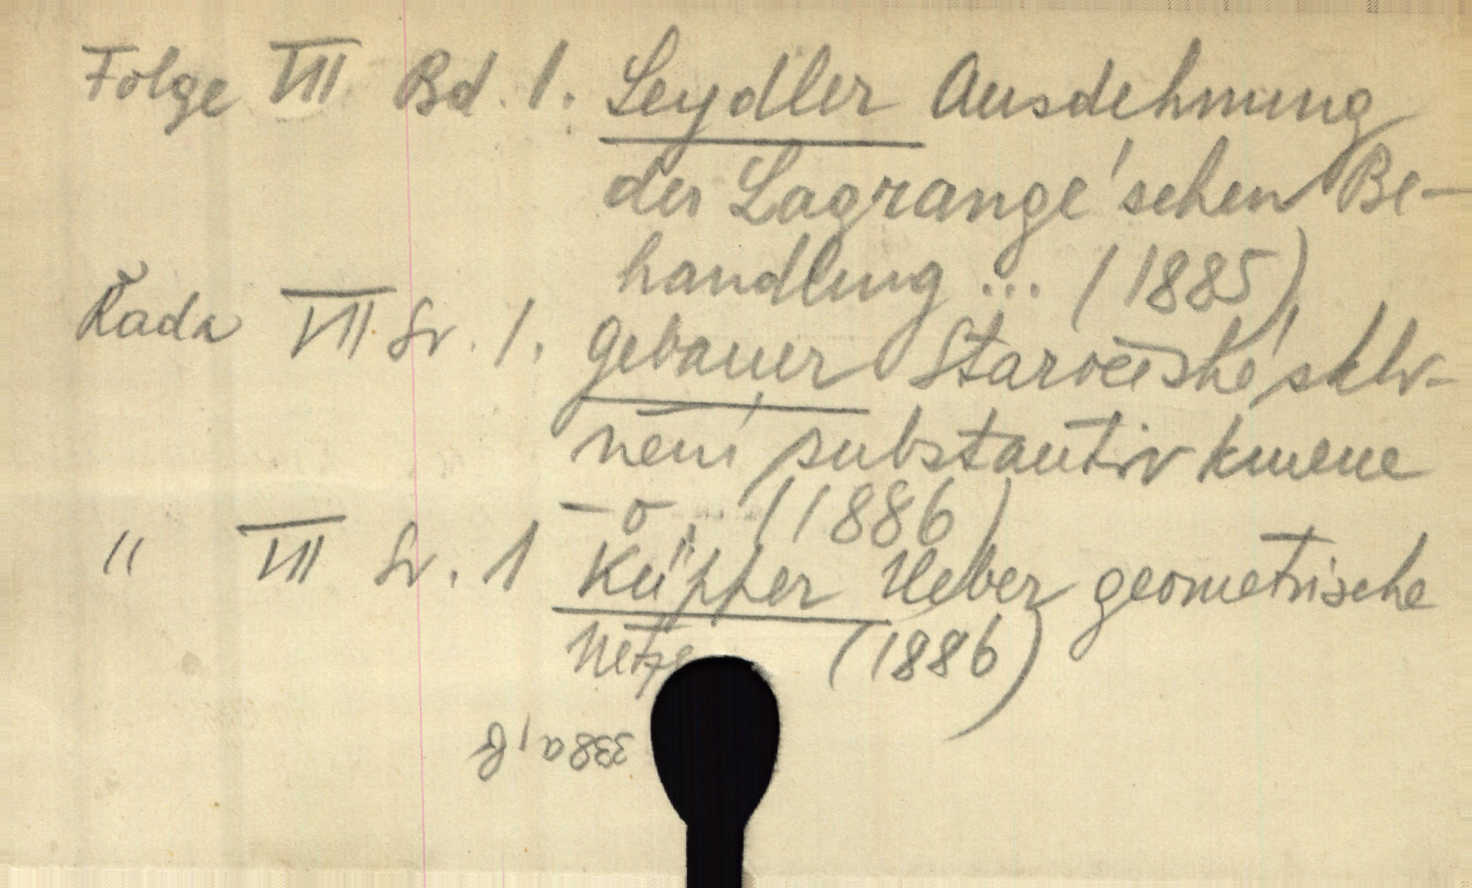 Folge VII Bd. 1. Seydler Ausdehnung
der Lagrange'schen Be-
handlung ... (1885)
Řada VII Sv. 1. Gebauer Staročeské sklo-
nění substantiv kmene
-o. (1886)
" VII Sv. 1 Küpper Ueber geometrische
Netze (1886)
338a,b